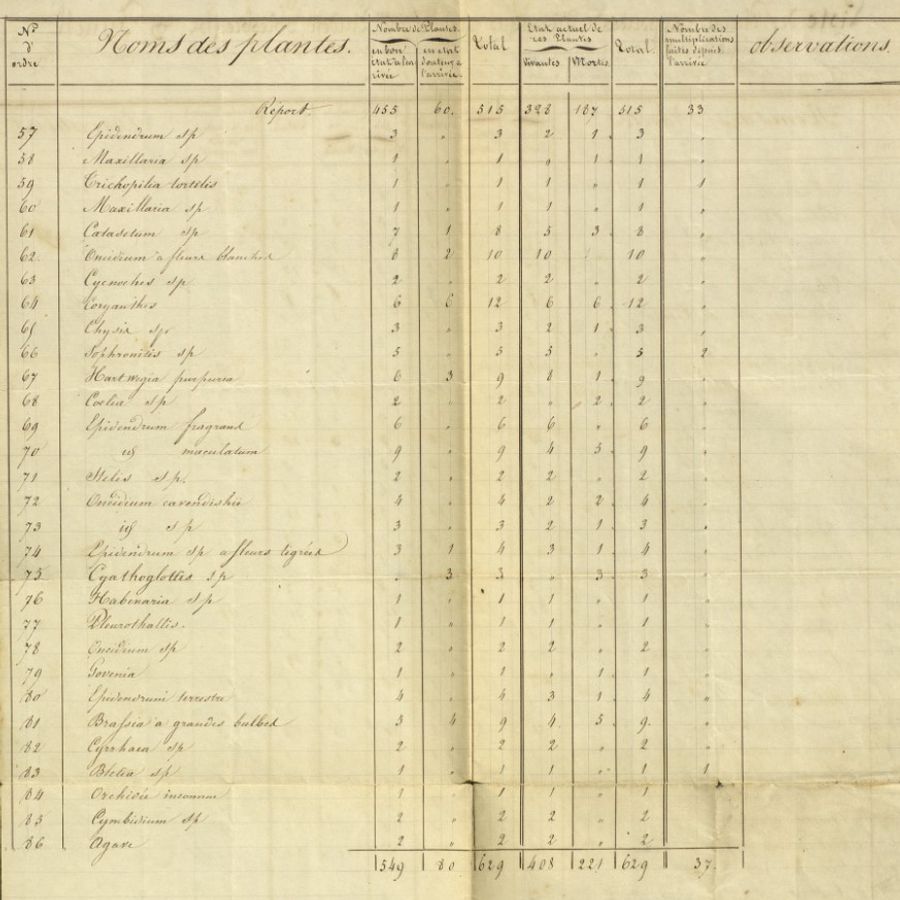 Nº d'ordre | Noms des plantes. | Nombre de Plantes. en bon état à l'arrivée | en état douteux à l'arrivée. | Total | Etat actuel de ces Plantes Vivantes | Mortes | Total. | Nombre des multiplications faites depuis l'arrivée | observations.
Report. 455 60. 515 328 187 515 33
57 Epidendrum sp 3 " 3 2 1. 3 "
58 Maxillaria sp 1 " 1 " 1 1 "
59 Trichopilia tortilis 1 " 1 1 " 1 1
60 Maxillaria sp 1 " 1 1 " 1 "
61 Catasetum sp 7 1 8 5 3 8 "
62. Oncidium à fleurs blanches 8 2 10 10 10 "
63 Cycnoches sp 2 " 2 2 " 2 "
64 Coryanthes 6 6 12 6 6. 12 "
65 Chysis sp 3 " 3 2 1. 3 "
66 Sophronitis sp 5 " 5 5 " 5 2
67 Hartwegia purpuria 6 3 9 8 1. 9 "
68 Coelia sp 2 " 2 " 2. 2 "
69 Epidendrum fragrans 6 " 6 6 " 6 "
70 id maculatum 9 " 9 4 5. 9 "
71 Stelis sp. 2 " 2 2 " 2 "
72 Oncidium cavendishii 4 " 4 2 2 4 "
73 id sp 3 " 3 2 1. 3 "
74 Epidendrum sp a fleurs tigrées 3 1 4 3 1. 4 "
75 Cyathoglottis sp " 3 3 " 3. 3 "
76 Habenaria sp 1 " 1 1 " 1 "
77 Pleurothallis. 1 " 1 1 " 1 "
78 Oncidium sp 2 " 2 2 " 2 "
79 Govenia 1 " 1 " 1 1 "
80 Epidendrum terrestre 4 " 4 3 1. 4 "
81 Brassia a grandes bulbes 4 9 4 5. 9. "
82 Cyrrhaea sp 2 " 2 2 " 2 "
83 Bletia sp 1 " 1 1 " 1 1
84 Orchidée 1 " 1 1 " 1 "
85 Cymbidium sp 2 " 2 2 " 2 "
86 Agave 2 " 2 2 " 2 "
549 80 629 408 221 629 37.